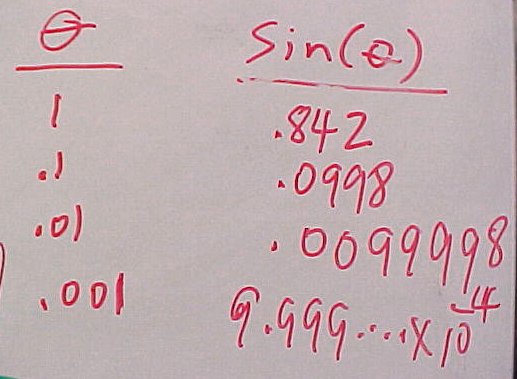 θ Sin(θ)
1 .842
.1 .0998
.01 .0099998
.001 9.999...x10^-4